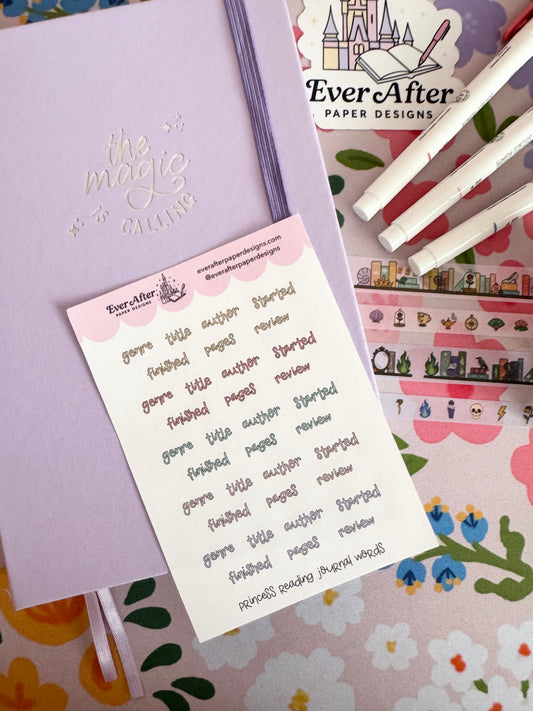 the
magic
is
CALLING
Ever After
PAPER DESIGNS
everafterpaperdesigns.com
@everafterpaperdesigns
Ever After
PAPER DESIGNS
genre title author started
finished pages review
genre title author started
finished pages review
genre title author started
finished pages review
genre title author started
finished pages review
genre title author started
finished pages review
PRINCESS READING JOURNAL WORDS